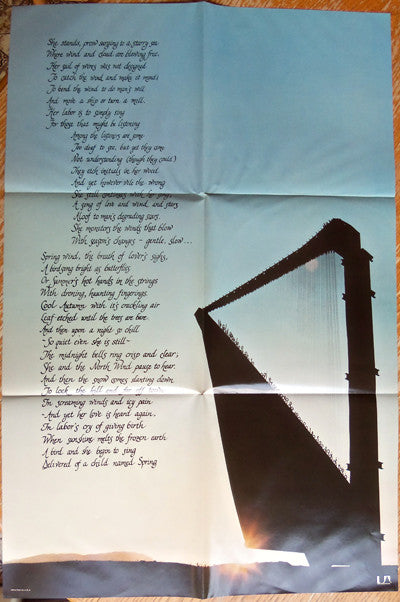 She stands, prow surging to a starry sea
Where wind and cloud are blowing free.
Her sail of wires was not designed
To catch the wind, and make it mind;
To bend the wind to do man's will
And move a ship or turn a mill.
Her labor is to simply sing
For those that might be listening
Among the listeners are some
Too deaf to see, but yet they come
Not understanding (though they could)
They etch initials in her wood.
And yet however vile the wrong
She still continues with her song,
A song of love and wind, and stars
Aloof to man's degrading scars.
She monsters the winds that blow
With season's changes - gentle, slow...
Spring wind, the breath of lover's sighs,
A birdsong bright as butterflies
Or Summer's hot hands in the strings
With droning, haunting fingerings.
Cool Autumn with its crackling air
Leaf etched until the trees are bare.
And then upon a night so chill
- So quiet even she is still -
The midnight bells ring crisp and clear,
She and the North Wind pause to hear.
And then the snow comes slanting down
To lock the hill and
In screaming winds and icy pain
- And yet her love is heard again.
In labor's cry of giving birth
When sunshine melts the frozen earth
A bird and she begin to sing
Delivered of a child named Spring
UA